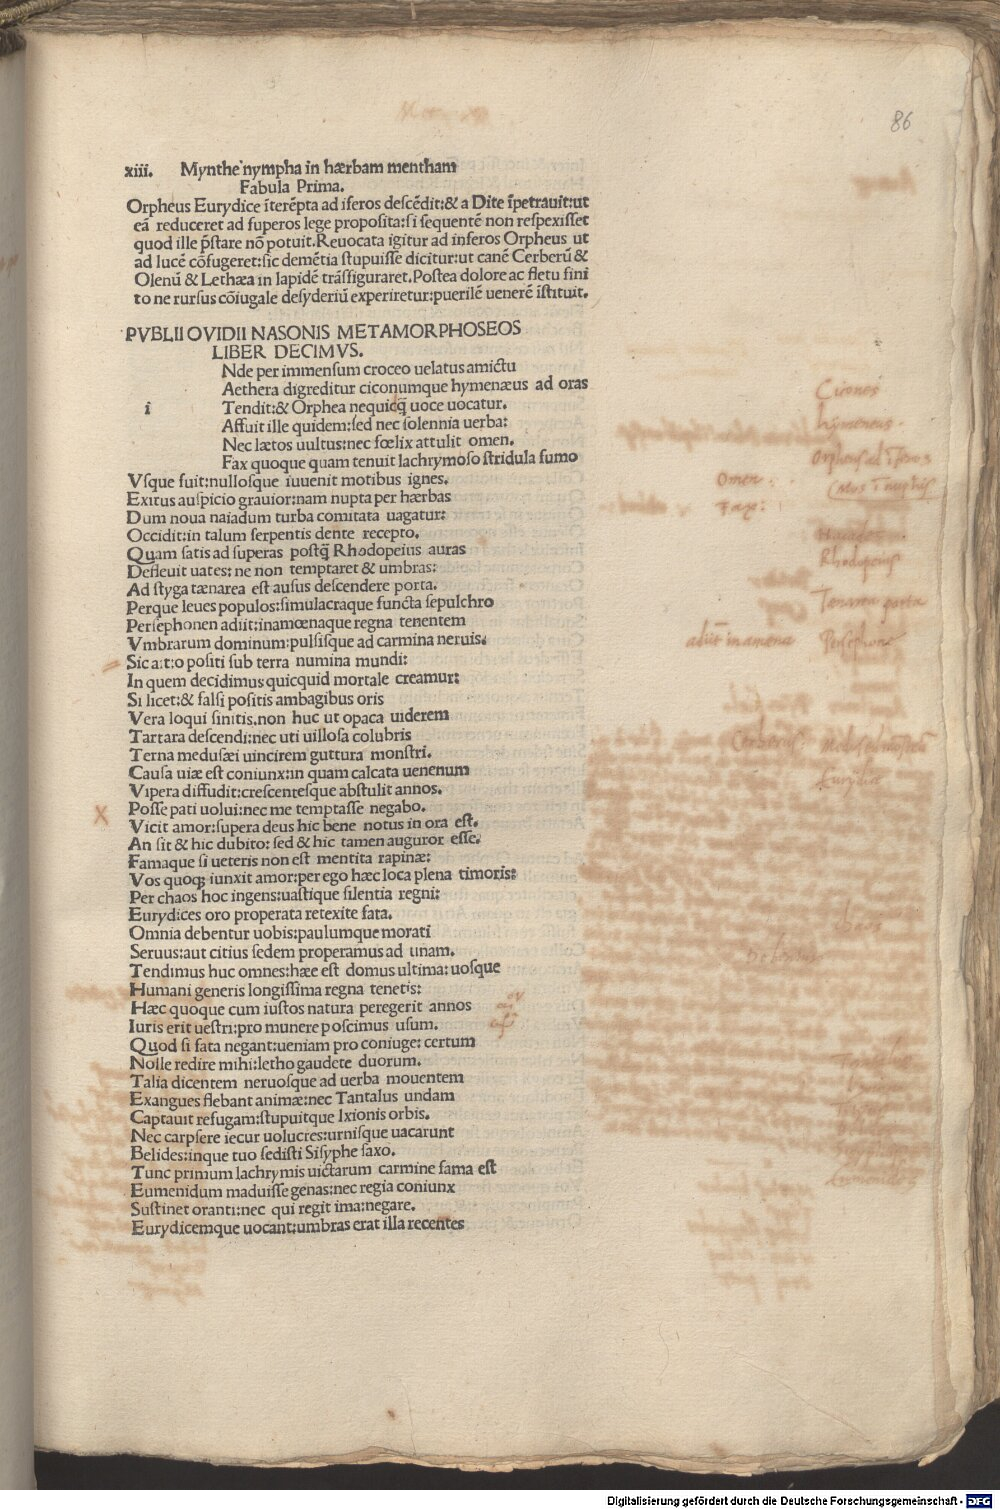 86
xiii. Mynthe nympha in hærbam mentham
Fabula Prima.
Orpheus Eurydice īterēpta ad īferos descēdit:& a Dite īpetrauit:ut
eā reduceret ad superos lege proposita:si sequentē non respexisset
quod ille p̄stare nō potuit.Reuocata igitur ad inferos Orpheus ut
ad lucē cōfugeret:sic demētia stupuisse dicitur:ut canē Cerberū &
Olenū & Lethæa in lapidē trāsfiguraret.Postea dolore ac fletu fini
to ne rursus cōiugale desyderiū experiretur:puerilē uenerē īstituit.
PVBLII OVIDII NASONIS METAMORPHOSEOS
LIBER DECIMVS.
Nde per immensum croceo uelatus amictu
Aethera digreditur ciconumque hymenæus ad oras
i Tendit:& Orphea nequicq̄ uoce uocatur.
Affuit ille quidem:sed nec solennia uerba:
Nec lætos uultus:nec fœlix attulit omen.
Fax quoque quam tenuit lachrymoso stridula fumo
Vsque fuit:nullosque iuuenit motibus ignes.
Exitus auspicio grauior:nam nupta per hærbas
Dum noua naiadum turba comitata uagatur:
Occidit:in talum serpentis dente recepto.
Quam satis ad superas postq̄ Rhodopeius auras
Defleuit uates: ne non temptaret & umbras:
Ad styga tænarea est ausus descendere porta.
Perque leues populos:simulacraque functa sepulchro
Persephonen adiit:inamœnaque regna tenentem
Vmbrarum dominum:pulsisque ad carmina neruis.
Sic ait:o positi sub terra numina mundi:
In quem decidimus quicquid mortale creamur:
Si licet:& falsi positis ambagibus oris
Vera loqui sinitis.non huc ut opaca uiderem
Tartara descendi:nec uti uillosa colubris
Terna medusæi uincirem guttura monstri.
Causa uiæ est coniunx:in quam calcata uenenum
Vipera diffudit:crescentesque abstulit annos.
Posse pati uolui:nec me temptasse negabo.
Vicit amor:supera deus hic bene notus in ora est.
An sit & hic dubito: sed & hic tamen auguror esse.
Famaque si ueteris non est mentita rapinæ:
Vos quoq; iunxit amor:per ego hæc loca plena timoris:
Per chaos hoc ingens:uastique silentia regni:
Eurydices oro properata retexite fata.
Omnia debentur uobis:paulumque morati
Serius:aut citius sedem properamus ad unam.
Tendimus huc omnes:hæc est domus ultima: uosque
Humani generis longissima regna tenetis:
Hæc quoque cum iustos natura peregerit annos
Iuris erit uestri:pro munere poscimus usum.
Quod si fata negant:ueniam pro coniuge: certum
Nolle redire mihi:letho gaudete duorum.
Talia dicentem neruosque ad uerba mouentem
Exangues flebant animæ:nec Tantalus undam
Captauit refugam:stupuitque Ixionis orbis.
Nec carpsere iecur uolucres:urnisque uacarunt
Belides:inque tuo sedisti Sisyphe saxo.
Tunc primum lachrymis uictarum carmine fama est
Eumenidum maduisse genas:nec regia coniunx
Sustinet oranti:nec qui regit ima:negare.
Eurydicemque uocant:umbras erat illa recentes
Cicones
hymeneus.
Omen
Faxe:
Rhodopeius
Tenarea porta
adiit inamena Persephone
Cerberus.
Eumenides
Digitalisierung gefördert durch die Deutsche Forschungsgemeinschaft - DFG